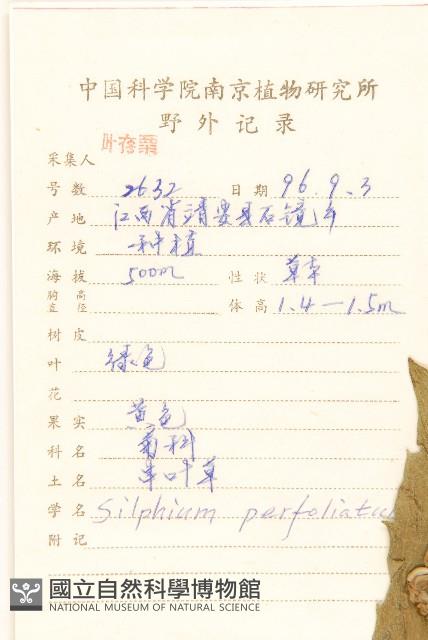 中国科学院南京植物研究所
野外记录
采集人 叶存粟
号数 2632 日期 96.9.3
产地 江西省靖安县石镜乡
环境 种植
海拔 500m 性状 草本
胸高直径 体高 1.4—1.5m
树皮
叶 绿色
花
果实 黄色
科名 菊科
土名 串叶草
学名 Silphium perfoliatu
附记
國立自然科學博物館
NATIONAL MUSEUM OF NATURAL SCIENCE